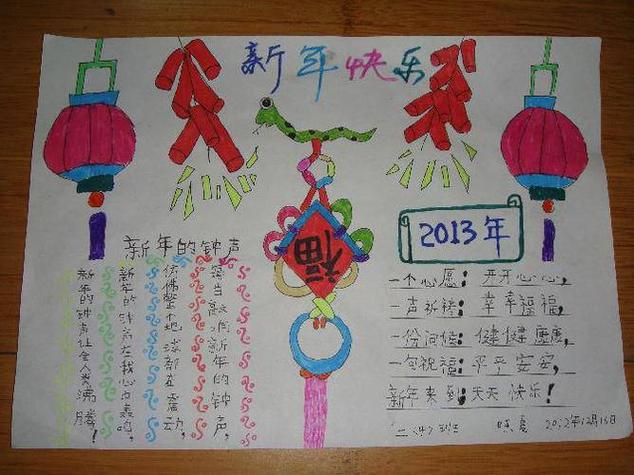 新年快乐
福
新年的钟声
当敲响新年的钟声，
仿佛整个地球都在震动，
新年的钟声在我心中轰鸣，
新年的钟声让全人类沸腾！
2013年
一个心愿：开开心心，
一声祈祷：幸幸福福，
一份问候：健健康康，
一句祝福：平平安安，
新年来到：天天快乐！
二 班 2012年12月16日